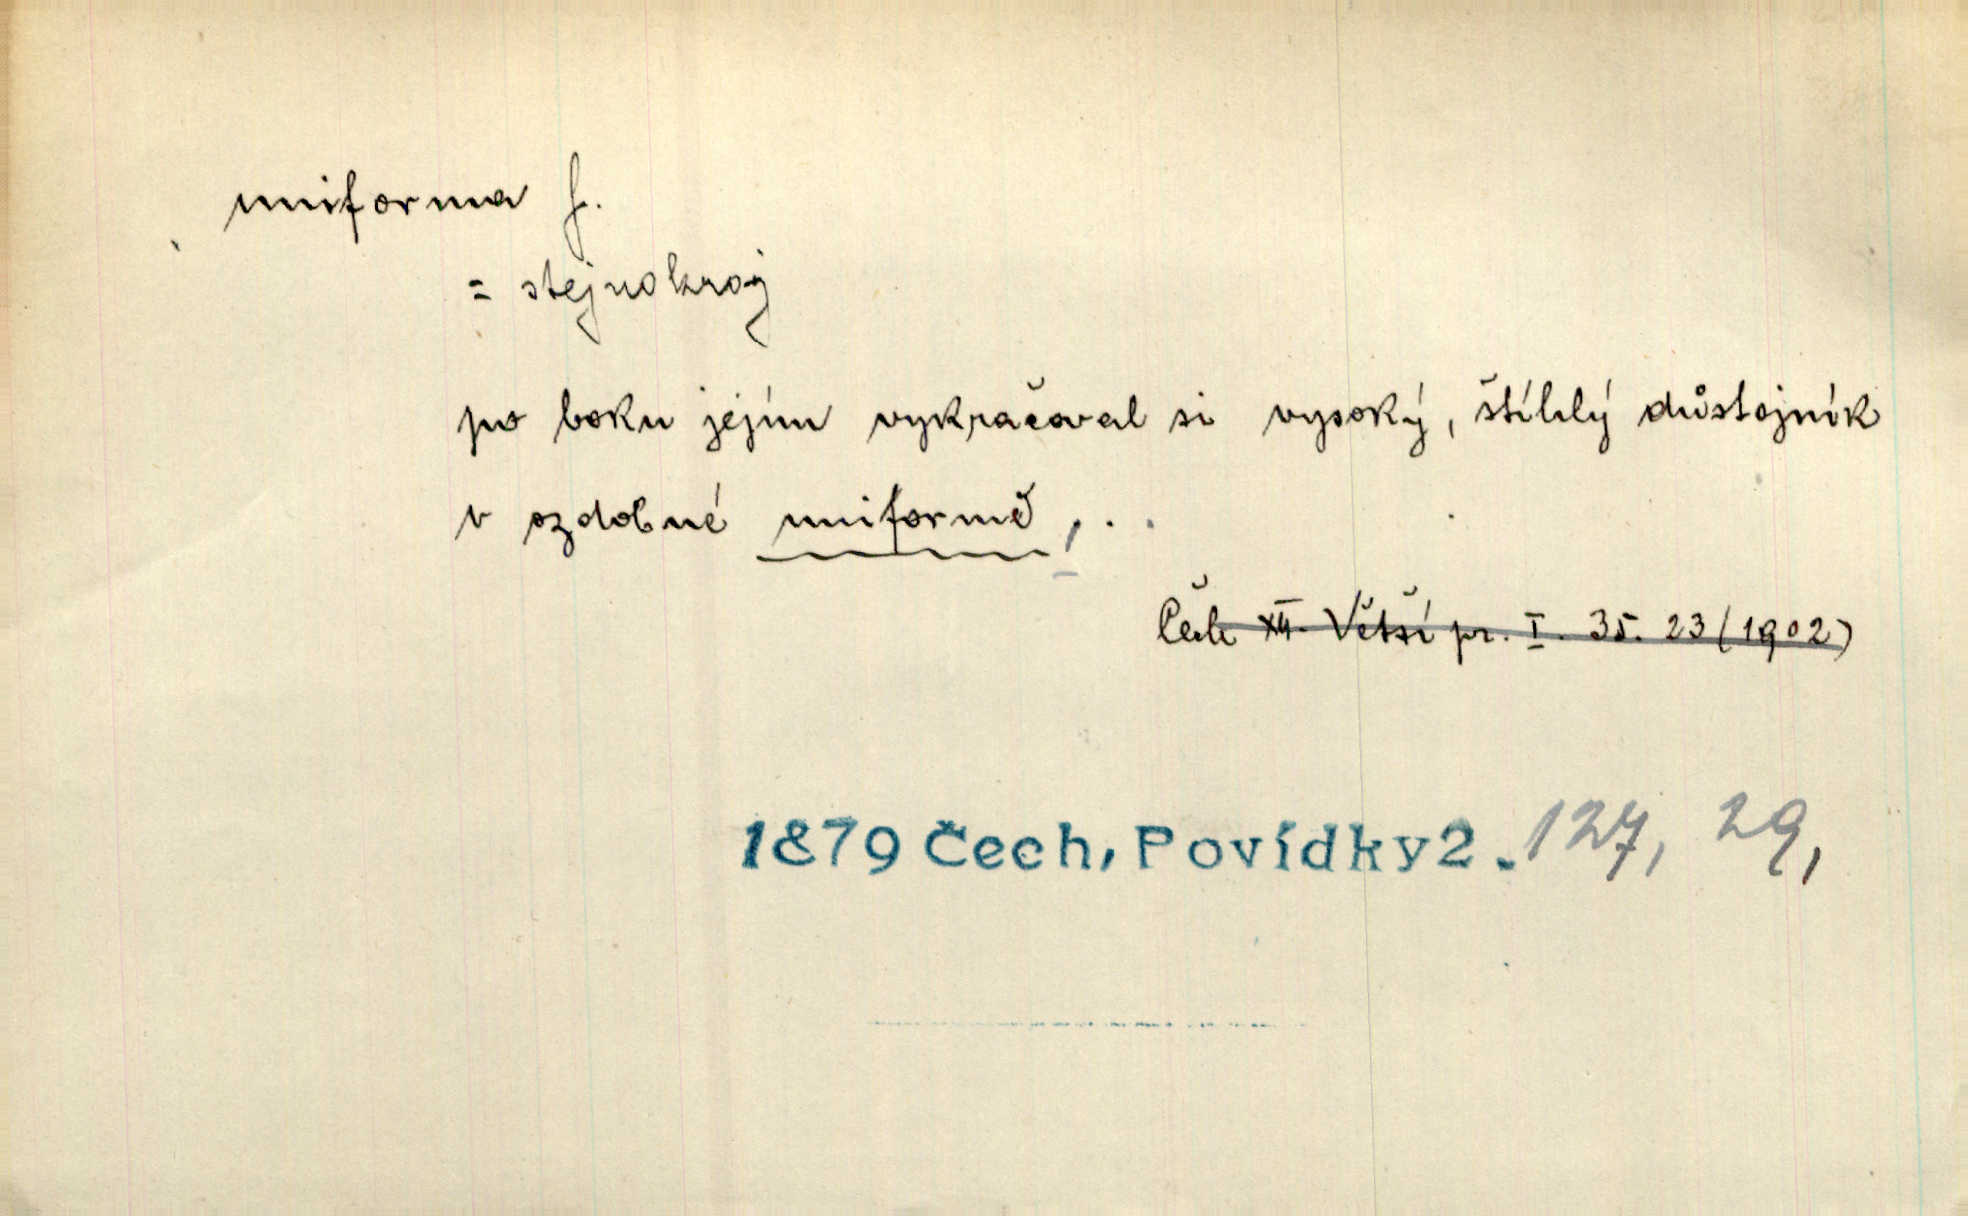 uniforma f.
= stejnokroj
po boku jejím vykračoval si vysoký, štíhlý důstojník
v ozdobné uniformě, . .
Čech XII. Větší pr. I. 35. 23 (1902)
1879 Čech, Povídky 2. 127, 29,